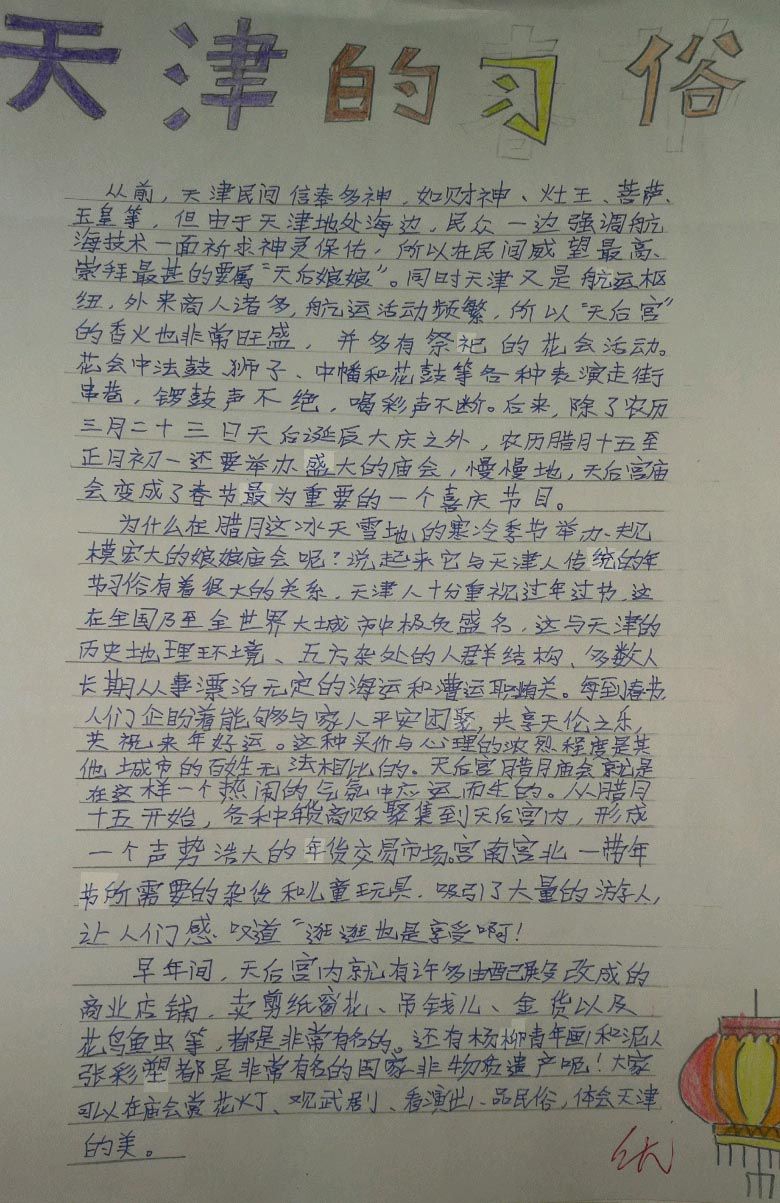 天津的习俗
从前，天津民间信奉多神，如财神、灶王、菩萨、
玉皇等，但由于天津地处海边，民众一边强调航
海技术一面祈求神灵保佑，所以在民间威望最高、
崇拜最甚的要属“天后娘娘”。同时天津又是航运枢
纽，外来商人诸多，航运活动频繁，所以“天后宫”
的香火也非常旺盛，并多有祭祀的花会活动。
花会中法鼓、狮子、中幡和花鼓等各种表演走街
串巷，锣鼓声不绝，喝彩声不断。后来，除了农历
三月二十三日天后诞辰大庆之外，农历腊月十五至
正月初一还要举办盛大的庙会，慢慢地，天后宫庙
会变成了春节最为重要的一个喜庆节目。
为什么在腊月这冰天雪地的寒冷季节举办规
模宏大的娘娘庙会呢？说起来它与天津人传统的年
节习俗有着很大的关系，天津人十分重视过年过节，这
在全国乃至全世界大城市中极负盛名，这与天津的
历史地理环境、五方杂处的人群结构、多数人
长期从事漂泊无定的海运和漕运职业有关。每到春节
人们企盼着能够与家人平安团聚，共享天伦之乐，
共祝来年好运。这种买价与心理的浓烈程度是其
他城市的百姓无法相比的。天后宫腊月庙会就是
在这样一个热闹的气氛中应运而生的。从腊月
十五开始，各种年货商贩聚集到天后宫内，形成
一个声势浩大的年货交易市场。宫南宫北一带年
节所需要的杂货和儿童玩具，吸引了大量的游人，
让人们感叹道“逛逛也是享受啊！
早年间，天后宫内就有许多由配殿改成的
商业店铺，卖剪纸窗花、吊钱儿、金货以及
花鸟鱼虫等，都是非常有名的。还有杨柳青年画和泥人
张彩塑都是非常有名的国家非物质遗产呢！大家
可以在庙会赏花灯、观武剧、看演出、品民俗，体会天津
的美。
优